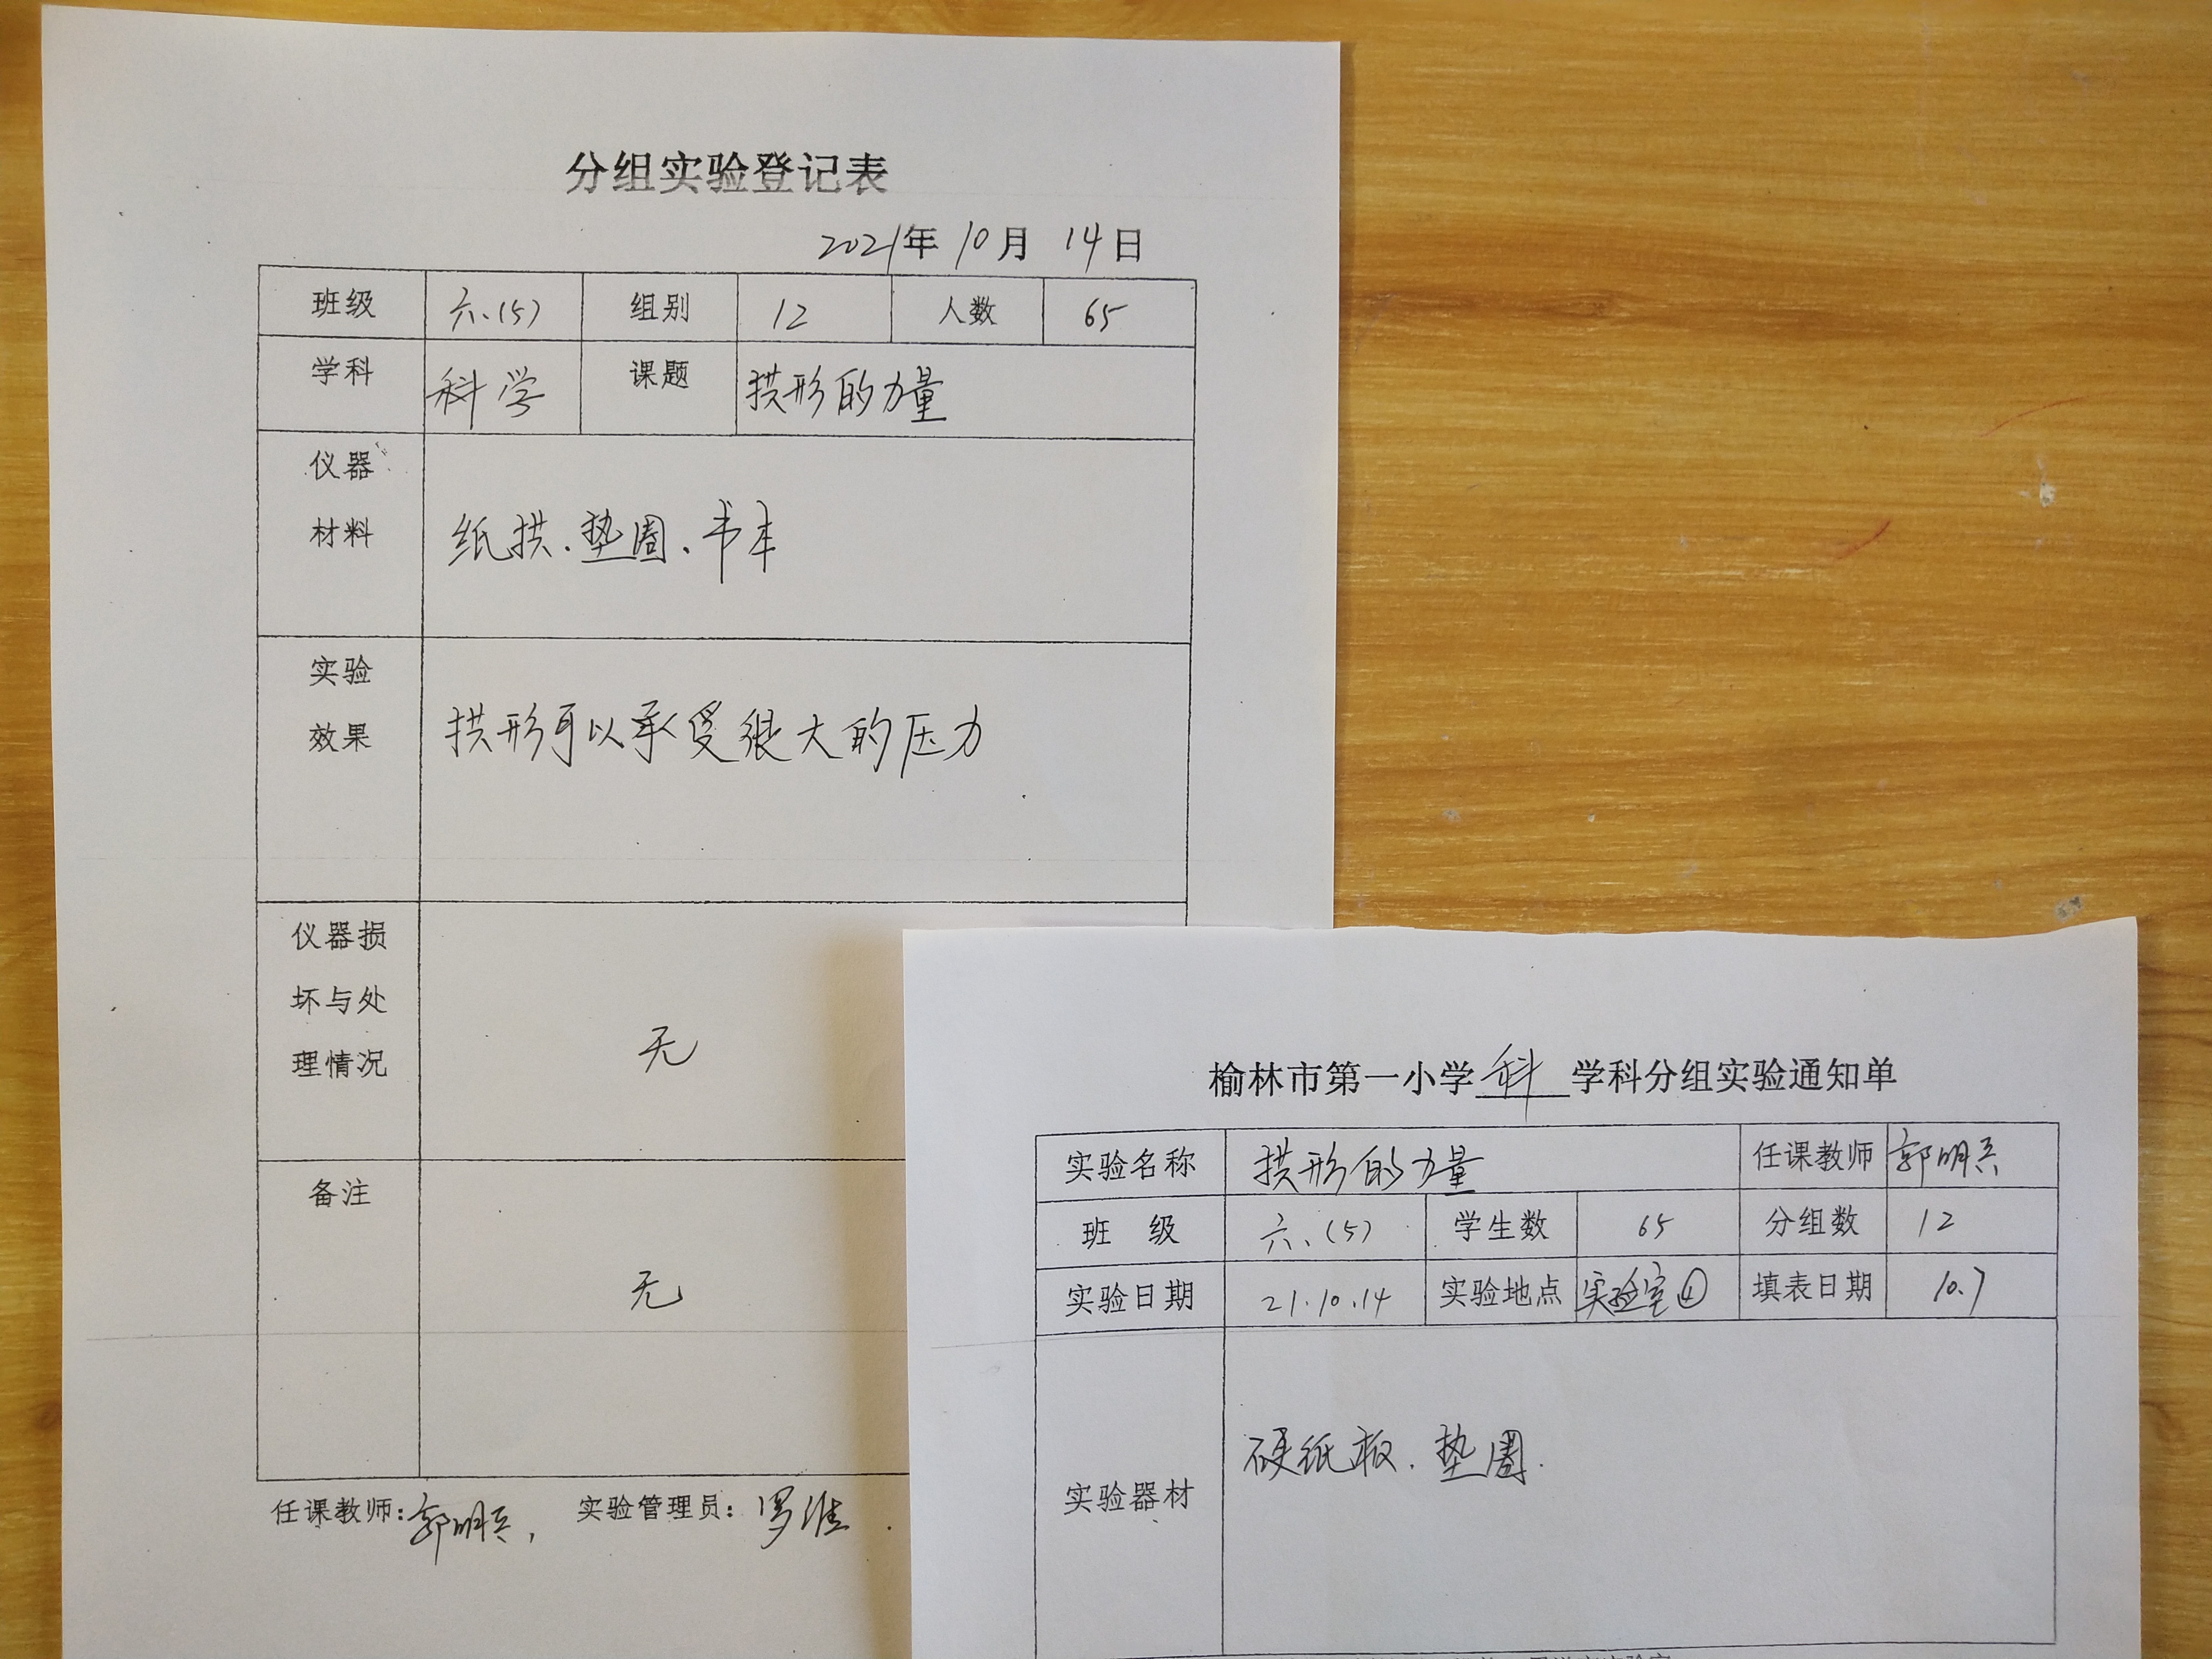 分组实验登记表
2021年10月14日
班级 六.(5) 组别 12 人数 65
学科 科学 课题 拱形的力量
仪器
材料
纸拱.垫圈.书本
实验
效果
拱形可以承受很大的压力
仪器损
坏与处
理情况
无
备注
无
任课教师:郭明兵, 实验管理员:罗维.
榆林市第一小学 科 学科分组实验通知单
实验名称 拱形的力量 任课教师 郭明兵
班 级 六.(5) 学生数 65 分组数 12
实验日期 21.10.14 实验地点 实验室④ 填表日期 10.7
实验器材 硬纸板.垫圈.